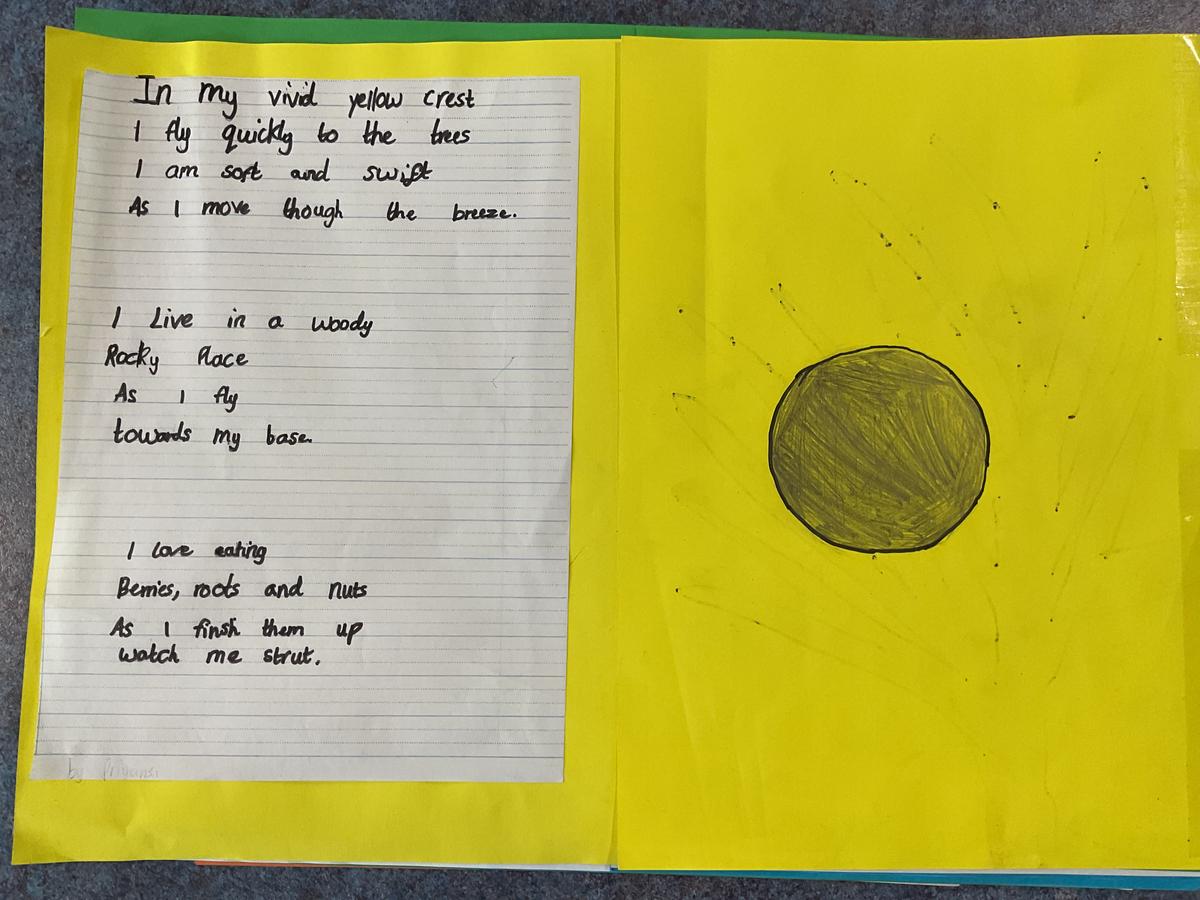 In my vivid yellow crest
I fly quickly to the trees
I am soft and swift
As I move though the breeze.
I Live in a woody
Rocky Place
As I fly
towards my base.
I love eating
Berries, roots and nuts
As I finsh them up
watch me strut.
by Priyansi